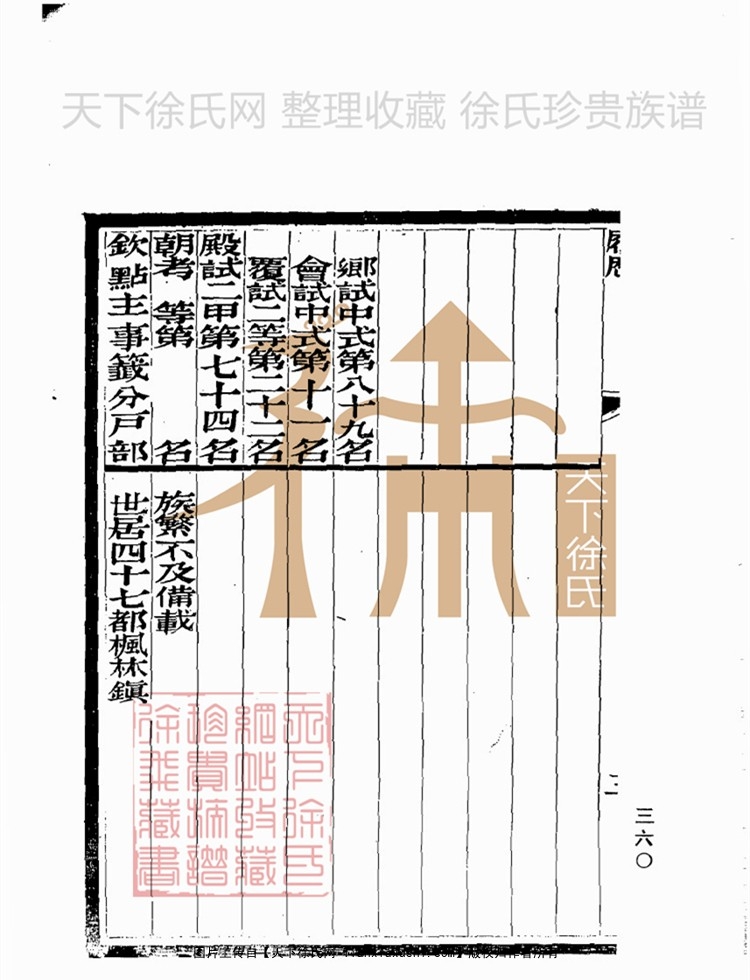 天下徐氏网 整理收藏 徐氏珍贵族谱
鄉試中式第八十九名
會試中式第十一名
覆試二等第二十二名
殿試二甲第七十四名
朝考 等第 名
欽點主事籤分戶部
族繁不及備載
世居四十七都楓林鎮
天下徐氏
三六〇